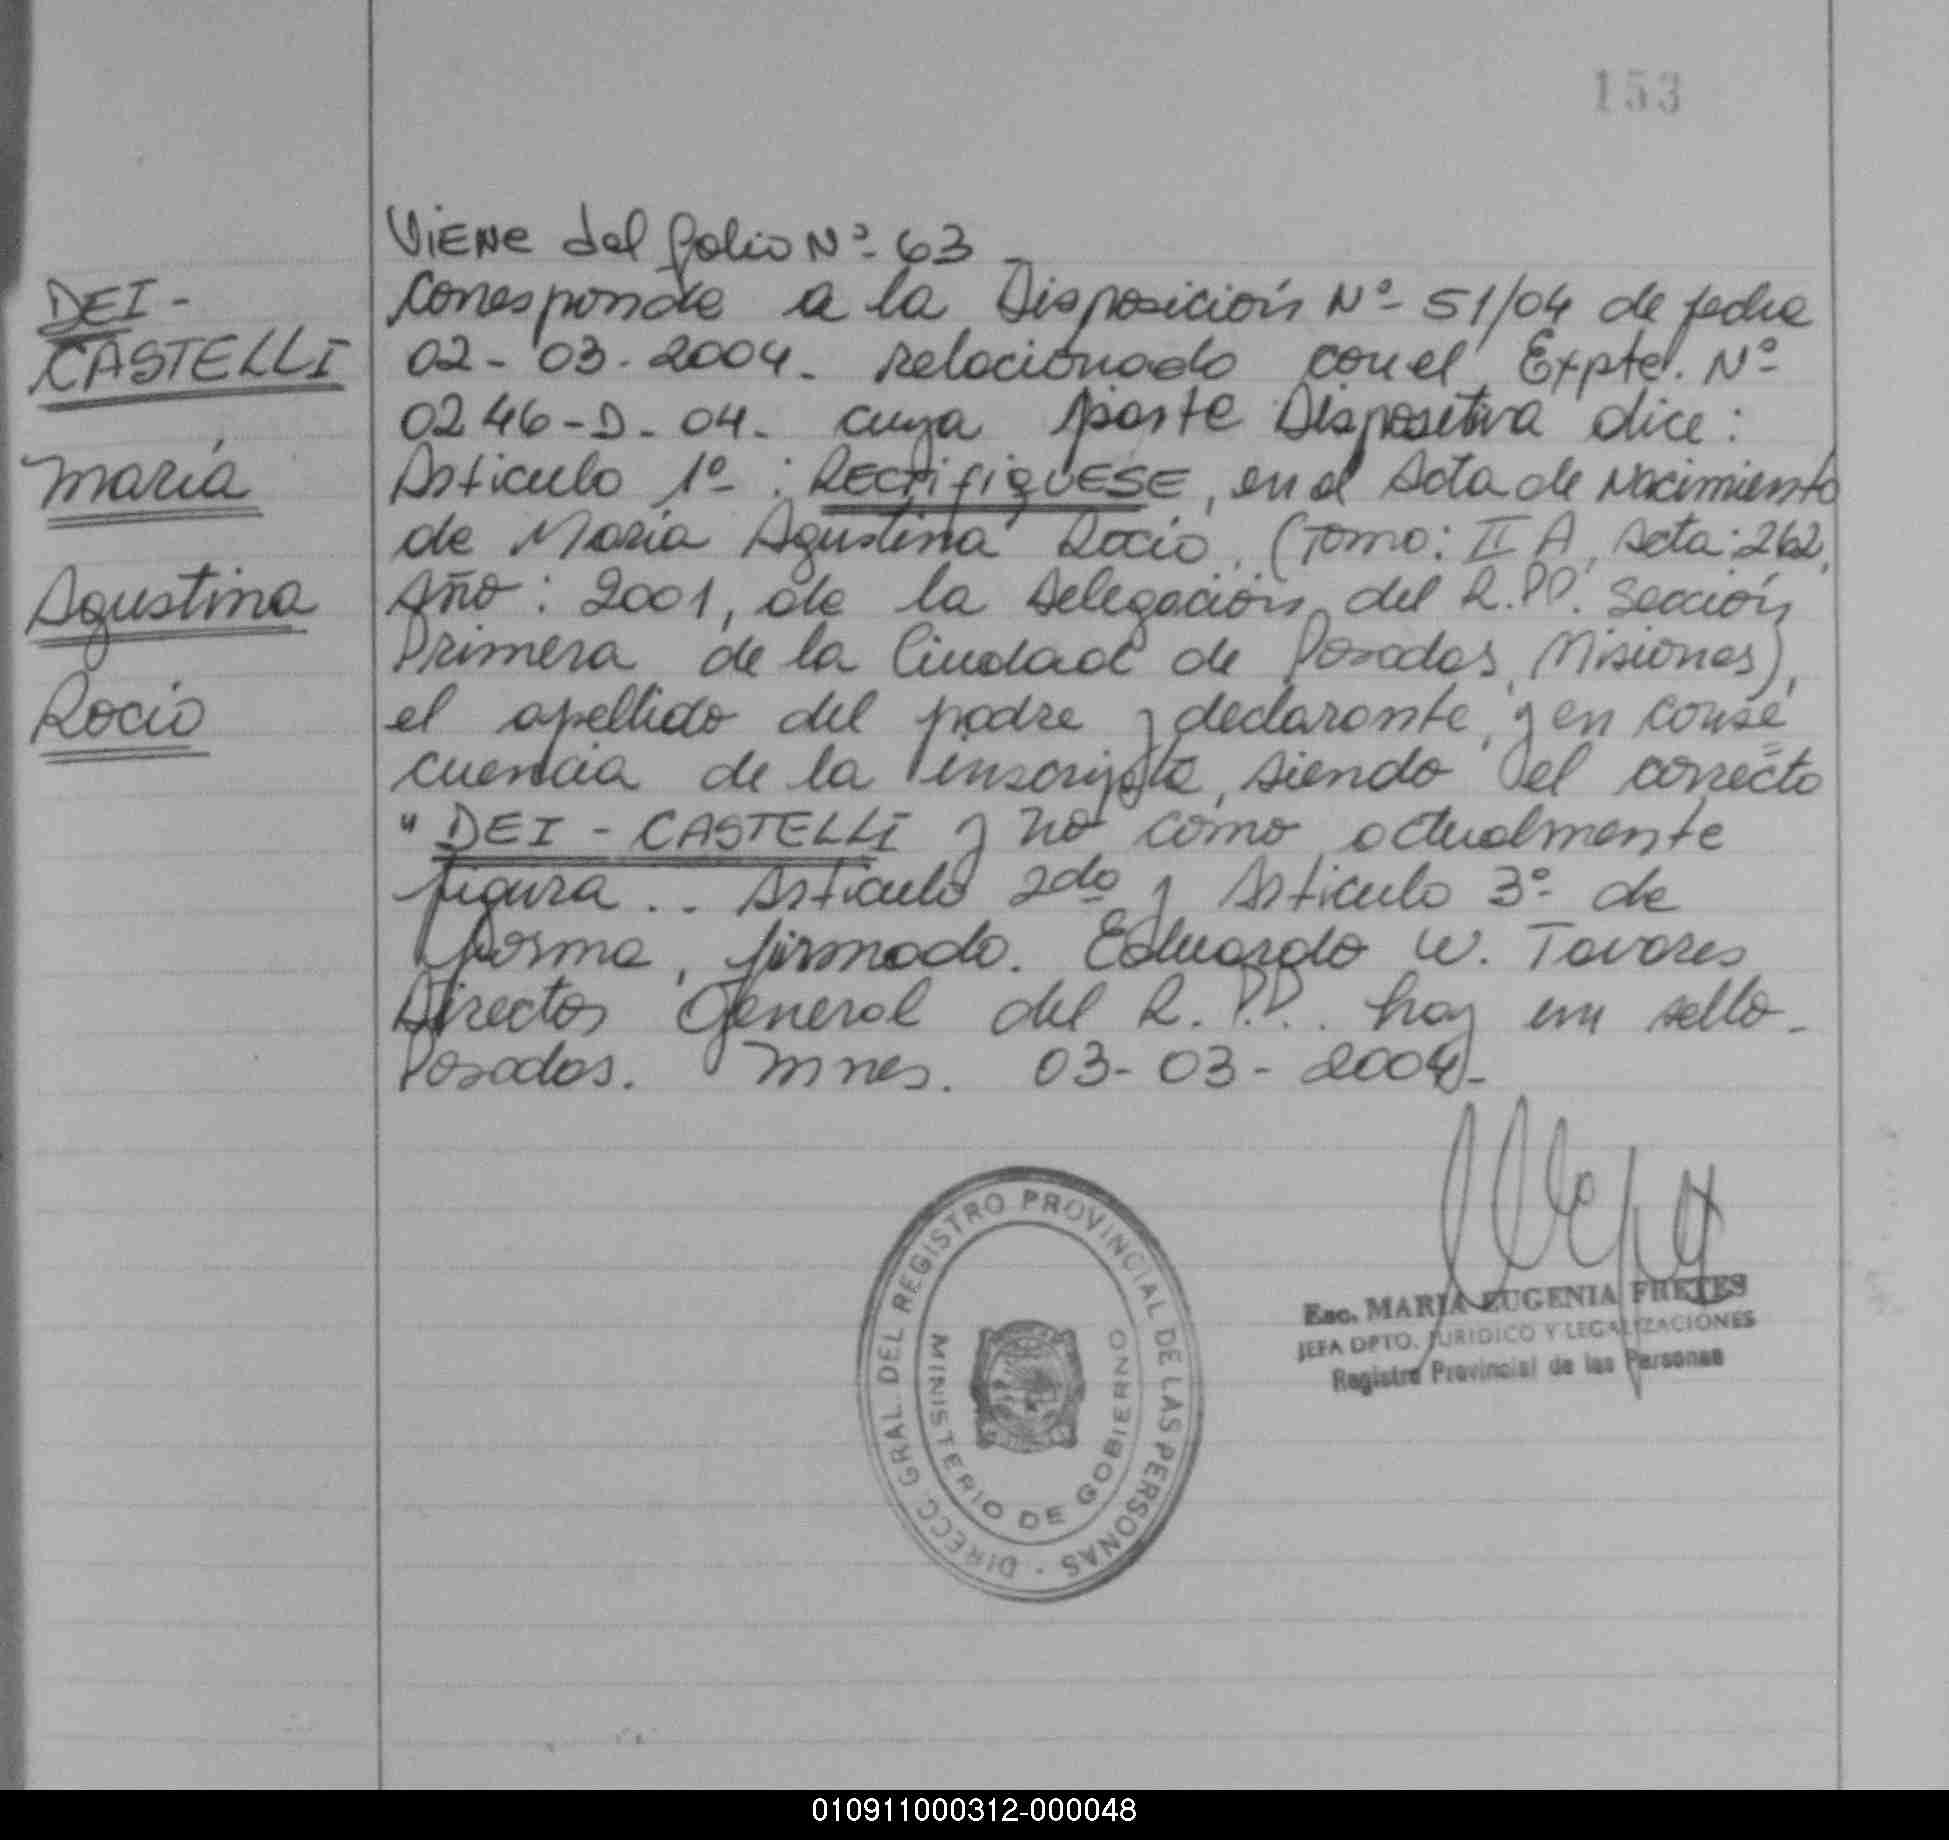 153
DEI-
CASTELLI
María
Agustina
Rocio
Viene del folio Nº- 63 -
Corresponde a la Disposición Nº- 51/04 de fecha
02-03-2004- relacionado con el Expte. Nº-
0246-D-04- cuya parte Dispositiva dice:
Articulo 1º-: RECTIFIQUESE, en el Acta de Nacimiento
de María Agustina Rocio, (Tomo: II A, Acta: 262,
Año: 2001, de la Delegación del R.P.P. Sección
Primera de la Ciudad de Posadas, Misiones),
el apellido del padre y declarante, y en conse
cuencia de la inscripta, siendo el correcto
"DEI-CASTELLI y no como actualmente
figura.. Articulo 2do y Articulo 3º- de
forma, firmado. Eduardo W. Tavares
Director General del R.P.P.. hay un sello-
Posadas. Mnes. 03-03-2004-
DIRECC. GRAL. DEL REGISTRO PROVINCIAL DE LAS PERSONAS -
MINISTERIO DE GOBIERNO
Esc. MARIA EUGENIA FRETES
JEFA DPTO. JURIDICO Y LEGALIZACIONES
Registro Provincial de las Personas
010911000312-000048